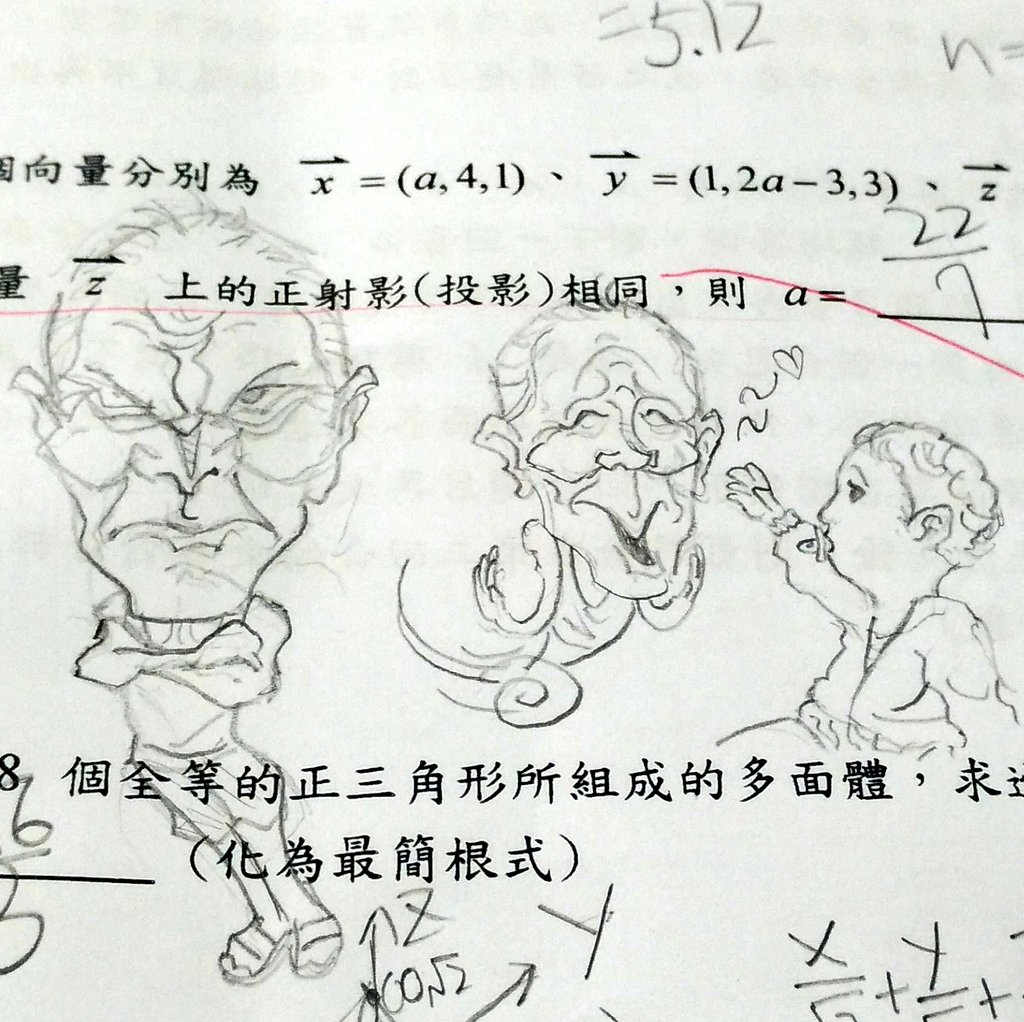 =5.12
n=
個向量分別為 x = (a,4,1)、 y = (1,2a-3,3)、 z
22
量 z 上的正射影(投影)相同,則 a=
7
8 個全等的正三角形所組成的多面體,求
6
(化為最簡根式)
z
y
100√2
x y
+ +